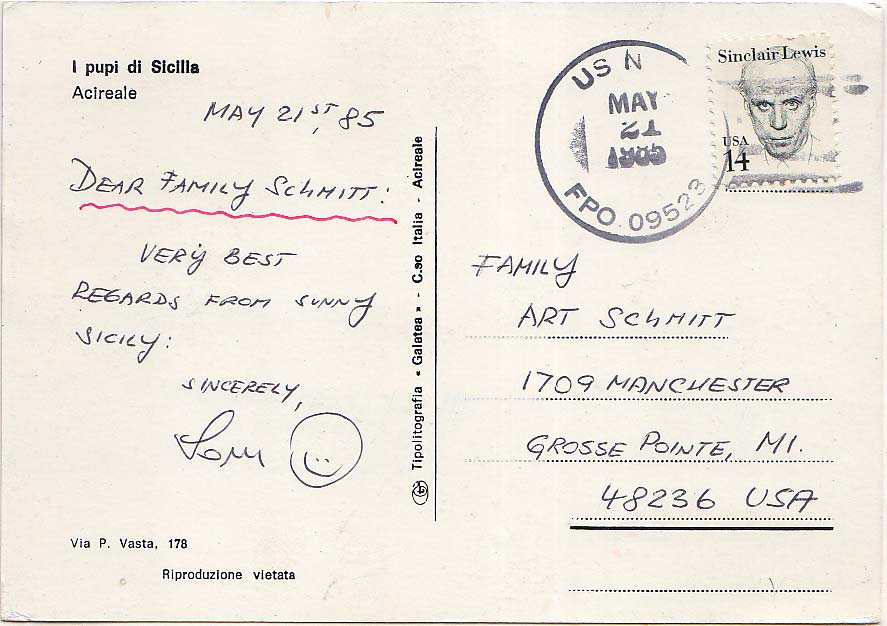 I pupi di Sicilia
Acireale
MAY 21ST, 85
DEAR FAMILY SCHMITT:
VERY BEST
REGARDS FROM SUNNY
SICILY:
SINCERELY,
Via P. Vasta, 178
Riproduzione vietata
Tipolitografia « Galatea » - C.so Italia - Acireale
USN
MAY
21
1985
FPO 09523
Sinclair Lewis
USA
14
FAMILY
ART SCHMITT
1709 MANCHESTER
GROSSE POINTE, MI.
48236 USA